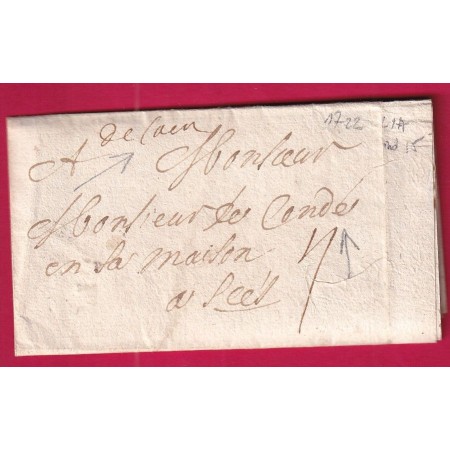 de Caen
1722
A Monsieur
Monsieur de Condé
en sa maison
a Sées